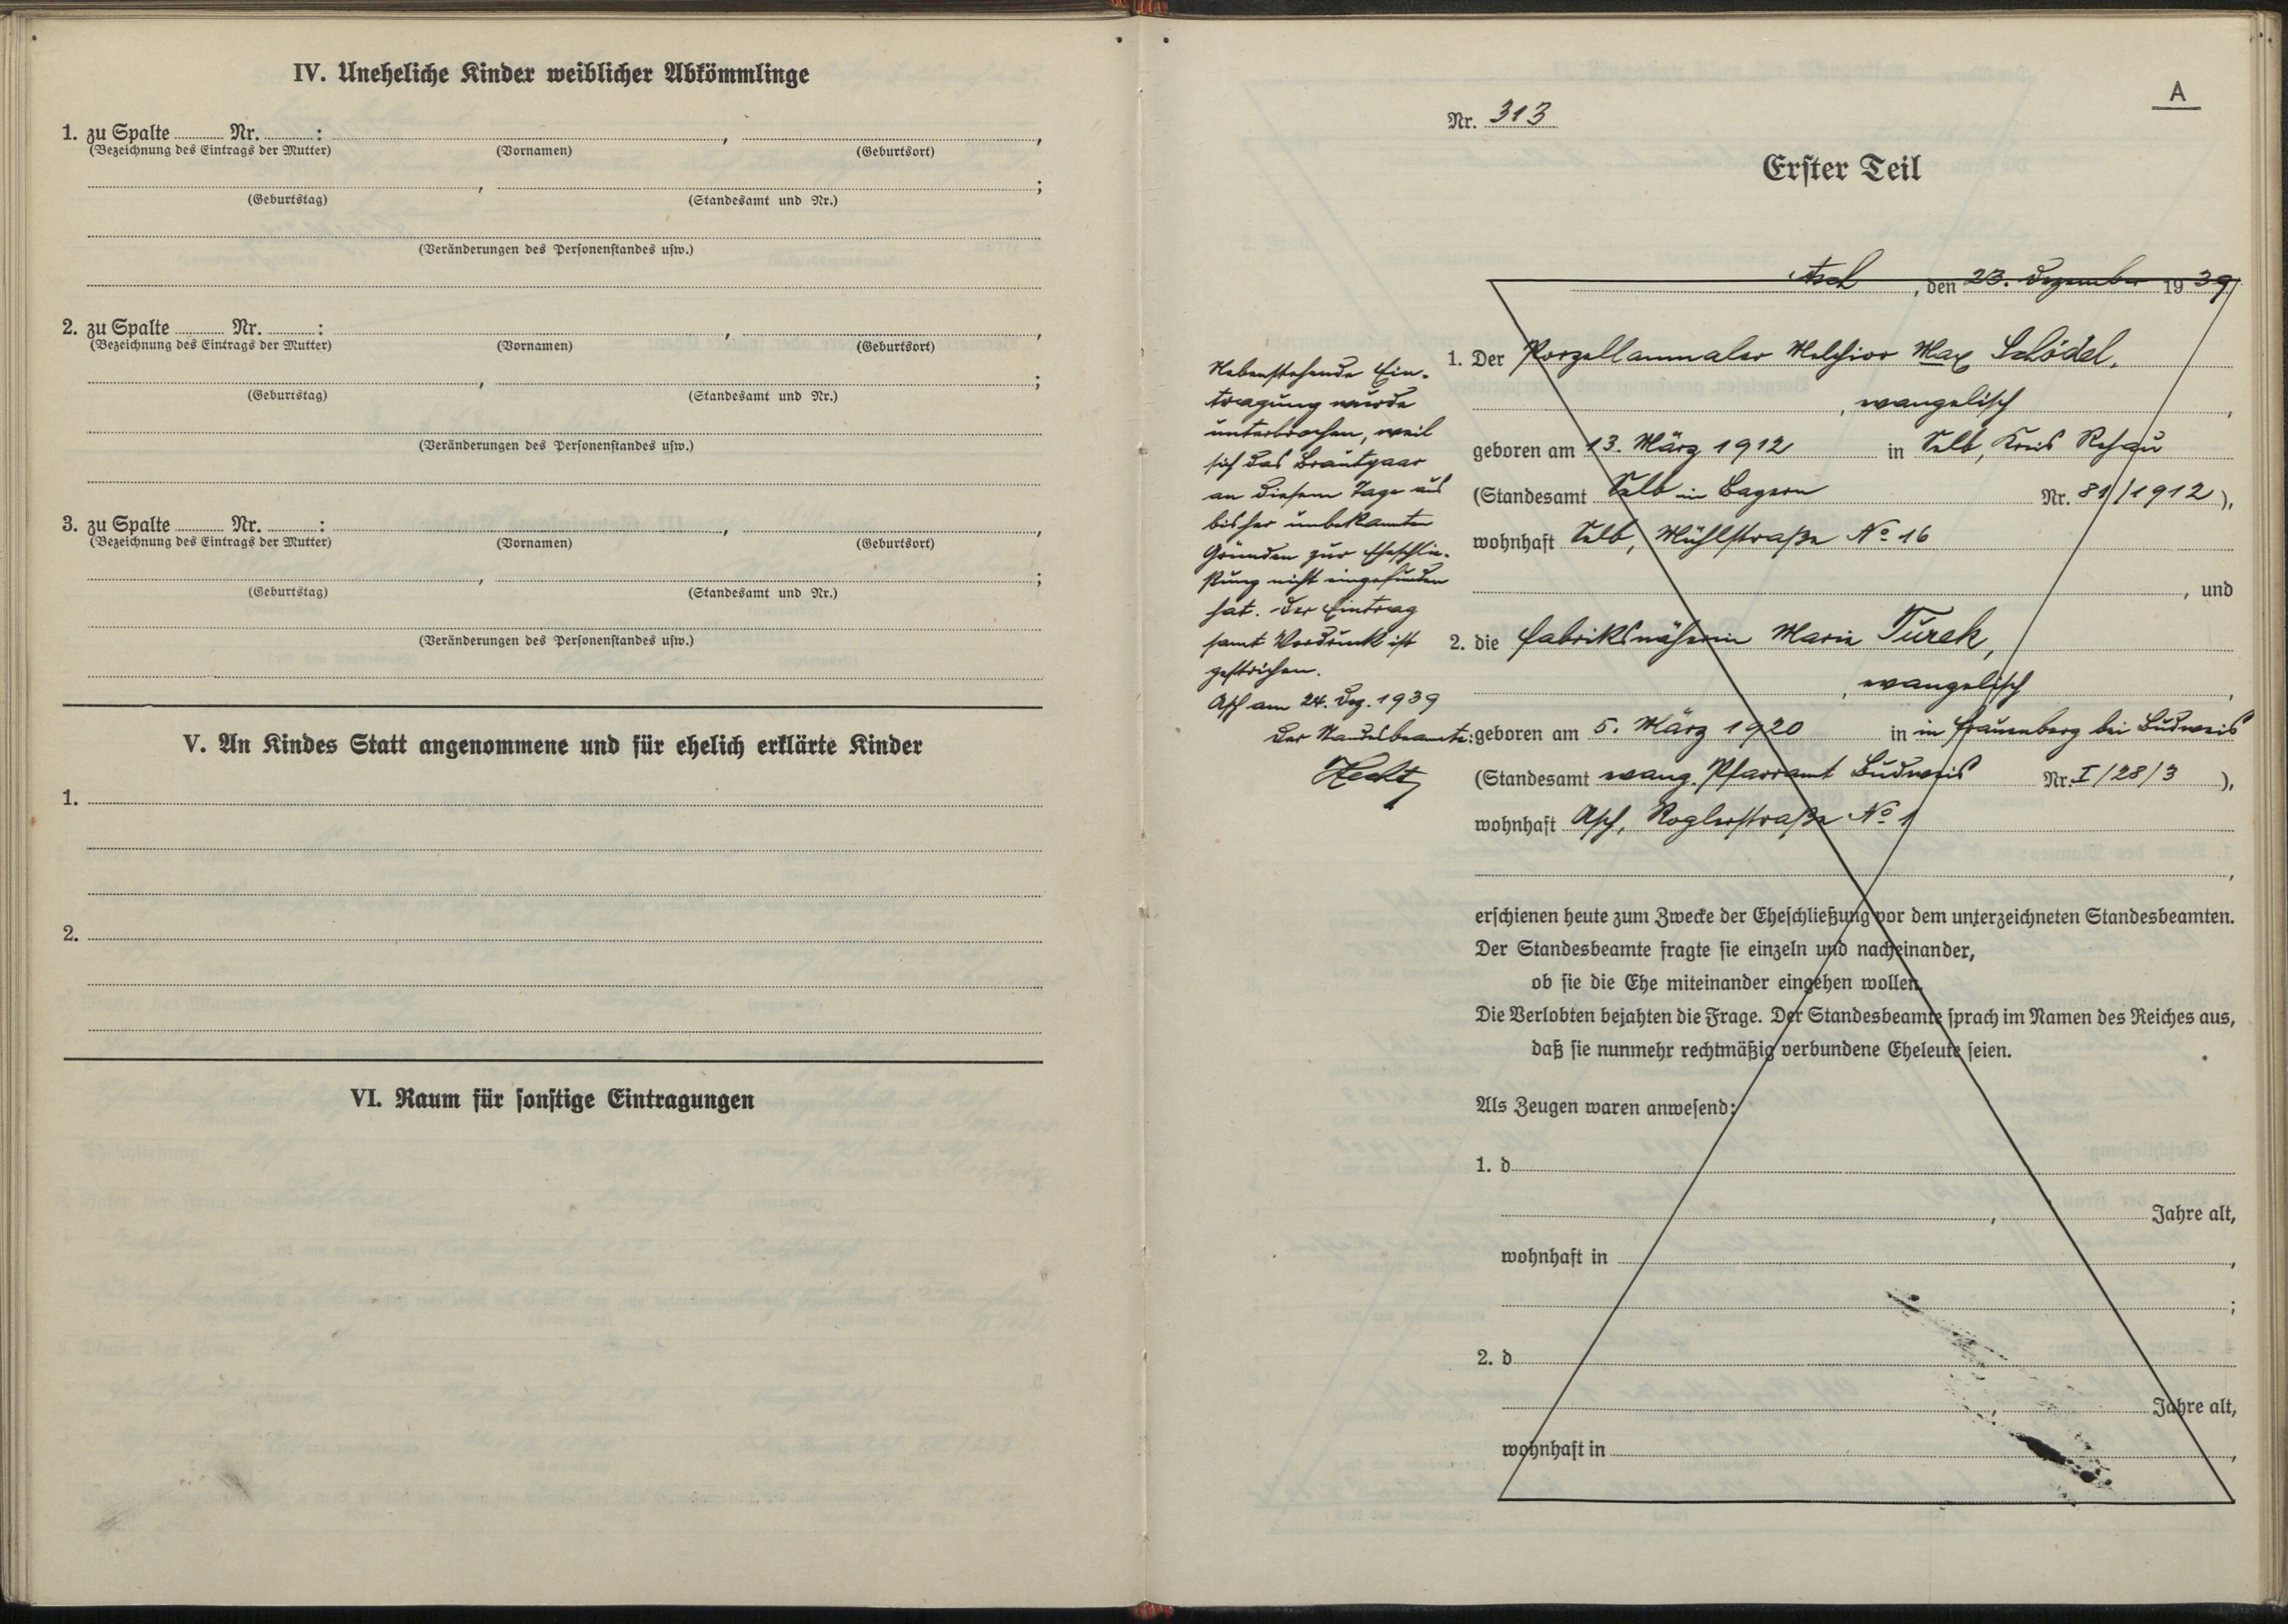 IV. Uneheliche Kinder weiblicher Abkömmlinge
1. zu Spalte ........ Nr. ........ : ........ , ........ ,
(Bezeichnung des Eintrags der Mutter) (Vornamen) (Geburtsort)
........ , ........ ;
(Geburtstag) (Standesamt und Nr.)
(Veränderungen des Personenstandes usw.)
2. zu Spalte ........ Nr. ........ : ........ , ........ ,
(Bezeichnung des Eintrags der Mutter) (Vornamen) (Geburtsort)
........ , ........ ;
(Geburtstag) (Standesamt und Nr.)
(Veränderungen des Personenstandes usw.)
3. zu Spalte ........ Nr. ........ : ........ , ........ ,
(Bezeichnung des Eintrags der Mutter) (Vornamen) (Geburtsort)
........ , ........ ;
(Geburtstag) (Standesamt und Nr.)
(Veränderungen des Personenstandes usw.)
V. An Kindes Statt angenommene und für ehelich erklärte Kinder
1.
2.
VI. Raum für sonstige Eintragungen
A
Nr. 313
Erster Teil
Asch , den 23. Dezember 1939
Nebenstehende Ein-
tragung wurde
unterbrochen, weil
sich das Brautpaar
an diesem Tage aus
bisher unbekannten
Gründen zur Eheschlie-
ßung nicht eingefunden
hat. Der Eintrag
samt Vordruck ist
gestrichen.
Asch am 24. Dez. 1939
Der Standesbeamte:
Hecht
1. Der Porzellanmaler Melchior Max Schödel,
, evangelisch ,
geboren am 13. März 1912 in Selb, Kreis Rehau
(Standesamt Selb in Bayern Nr. 81/1912 ),
wohnhaft Selb, Mühlstraße No 16
, und
2. die Fabriksnäherin Marie Turek,
, evangelisch ,
geboren am 5. März 1920 in in Frauenberg bei Budweis
(Standesamt evang. Pfarramt Budweis Nr. I/28/3 ),
wohnhaft Asch, Roglerstraße No 1
,
erschienen heute zum Zwecke der Eheschließung vor dem unterzeichneten Standesbeamten.
Der Standesbeamte fragte sie einzeln und nacheinander,
ob sie die Ehe miteinander eingehen wollen.
Die Verlobten bejahten die Frage. Der Standesbeamte sprach im Namen des Reiches aus,
daß sie nunmehr rechtmäßig verbundene Eheleute seien.
Als Zeugen waren anwesend:
1. d
, ........ Jahre alt,
wohnhaft in ........ ,
;
2. d
, ........ Jahre alt,
wohnhaft in ........ ,